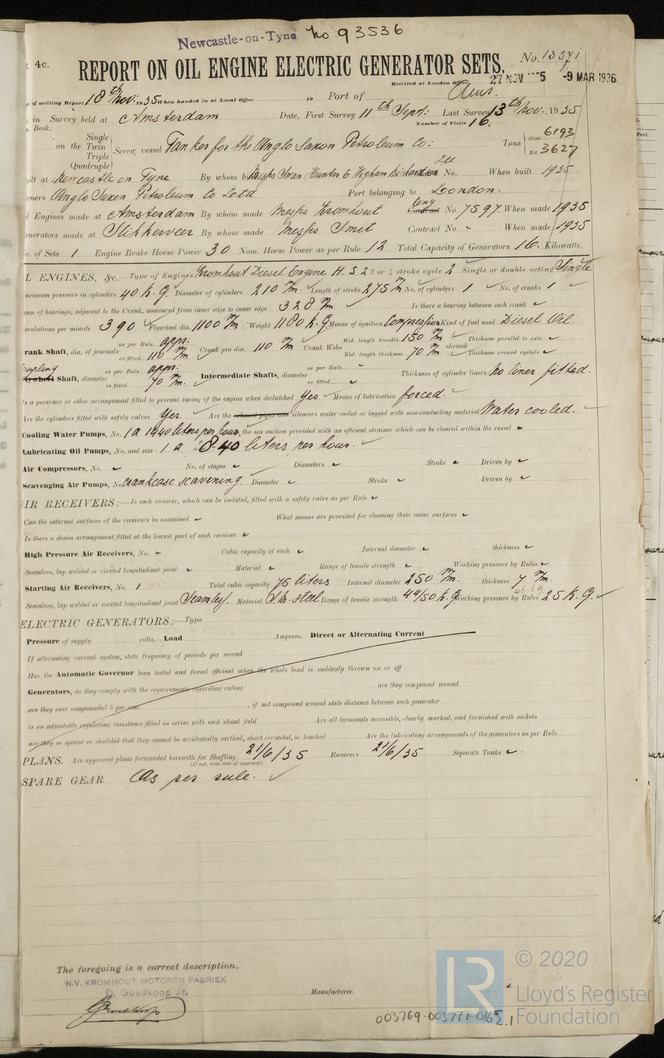 Newcastle-on-Tyne No 93536
4c. REPORT ON OIL ENGINE ELECTRIC GENERATOR SETS. No. 13571
Received at London Office 27 NOV 1935 -9 MAR 1936
of writing Report 18th Nov: 1935 When handed in at Local Office 19 Port of Ams.
in Survey held at Amsterdam Date, First Survey 11th Sept: Last Survey 13th Nov: 1935
Book. Number of Visits 16.
on the Single Twin Triple Quadruple Screw vessel Tanker for the Anglo Saxon Petroleum Co: Tons Gross 6193 Net 3627
ilt at Newcastle on Tyne By whom built Messrs Swan Hunter & Wigham Richardson Ltd No. When built 1935
ners Anglo Saxon Petroleum Co Ltd Port belonging to London.
l Engines made at Amsterdam By whom made Messrs Kromhout Eng Contract No. 7597 When made 1935
enerators made at Slikkerveer By whom made Messrs Smit Contract No. - When made 1935
o. of Sets 1 Engine Brake Horse Power 30 Nom. Horse Power as per Rule 12 Total Capacity of Generators 16 Kilowatts.
L ENGINES, &c.—Type of Engines Kromhout Diesel Engine H.S. 2 or 4 stroke cycle 2 Single or double acting Single
aximum pressure in cylinders 40 K.G. Diameter of cylinders 210 m/m Length of stroke 275 m/m No. of cylinders 1 No. of cranks 1
an of bearings, adjacent to the Crank, measured from inner edge to inner edge 328 m/m Is there a bearing between each crank
evolutions per minute 390 Flywheel dia. 1100 m/m Weight 1180 K.G. Means of ignition Compression Kind of fuel used Diesel Oil
rank Shaft, dia. of journals as per Rule appr. as fitted 110 m/m Crank pin dia. 110 m/m Crank Webs Mid. length breadth 150 m/m Mid. length thickness 70 m/m shrunk Thickness parallel to axis Thickness around eyehole
Flywheel Shaft, diameter as per Rule appr. as fitted 70 m/m Intermediate Shafts, diameter as per Rule as fitted Thickness of cylinder liners no liner fitted.
Is a governor or other arrangement fitted to prevent racing of the engine when declutched Yes. Means of lubrication forced.
Are the cylinders fitted with safety valves Yes. Are the exhaust pipes and silencers water cooled or lagged with non-conducting material Water cooled.
Cooling Water Pumps, No. 1 a 1440 liters per hour. the sea suction provided with an efficient strainer which can be cleared within the vessel
Lubricating Oil Pumps, No. and size 1 a 840 liters per hour.
Air Compressors, No. No. of stages Diameters Stroke Driven by
Scavenging Air Pumps, No. Crankcase scavening Diameter Stroke Driven by
IR RECEIVERS:—Is each receiver, which can be isolated, fitted with a safety valve as per Rule
Can the internal surfaces of the receivers be examined What means are provided for cleaning their inner surfaces
Is there a drain arrangement fitted at the lowest part of each receiver
High Pressure Air Receivers, No. Cubic capacity of each Internal diameter thickness
Seamless, lap welded or riveted longitudinal joint Material Range of tensile strength Working pressure by Rules
Starting Air Receivers, No. 1 Total cubic capacity 75 liters Internal diameter 250 m/m thickness 7 m/m
Seamless, lap welded or riveted longitudinal joint Seamless. Material S.M. steel Range of tensile strength 44/50 K.G. Working pressure by Rules 25 K.G.
ELECTRIC GENERATORS:—Type
Pressure of supply volts. Load Amperes. Direct or Alternating Current
If alternating current system, state frequency of periods per second
Has the Automatic Governor been tested and found efficient when the whole load is suddenly thrown on or off
Generators, do they comply with the requirements regarding rating are they compound wound
are they over compounded 5 per cent. , if not compound wound state distance between each generator
is an adjustable regulating resistance fitted in series with each shunt field Are all terminals accessible, clearly marked, and furnished with sockets
are they so spaced or shielded that they cannot be accidentally earthed, short circuited, or touched Are the lubricating arrangements of the generators as per Rule
PLANS. Are approved plans forwarded herewith for Shafting 21/6/35 Receivers 21/6/35 Separate Tanks
(If not, state date of approval)
SPARE GEAR As per rule.
The foregoing is a correct description,
N.V. KROMHOUT MOTOREN FABRIEK
D. Goedkoop Jr.
Manufacturer.
003769-003777-0165 2.1
LR © 2020
Lloyd's Register
Foundation